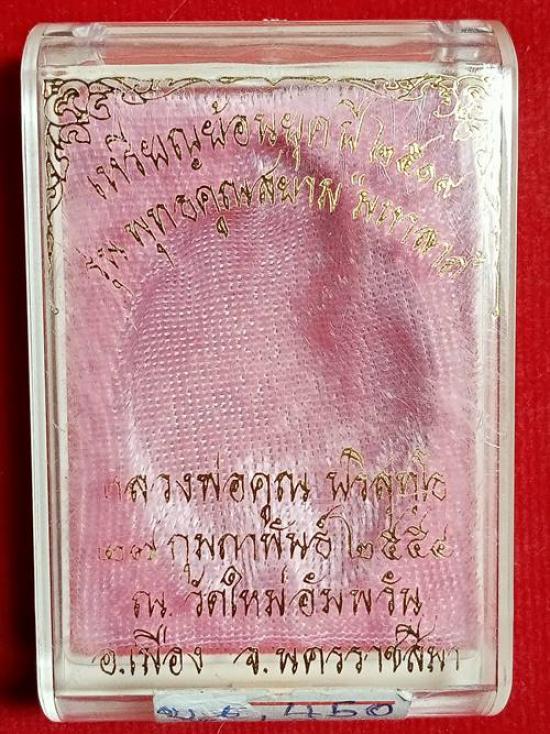 เหรียญย้อนยุค ปี ๒๕๑๗
รุ่น พุทธคุณสยาม "มหาลาภ"
หลวงพ่อคูณ ปริสุทฺโธ
๒๗ กุมภาพันธ์ ๒๕๕๔
ณ. วัดใหม่อัมพวัน
อ.เมือง จ.นครราชสีมา
450